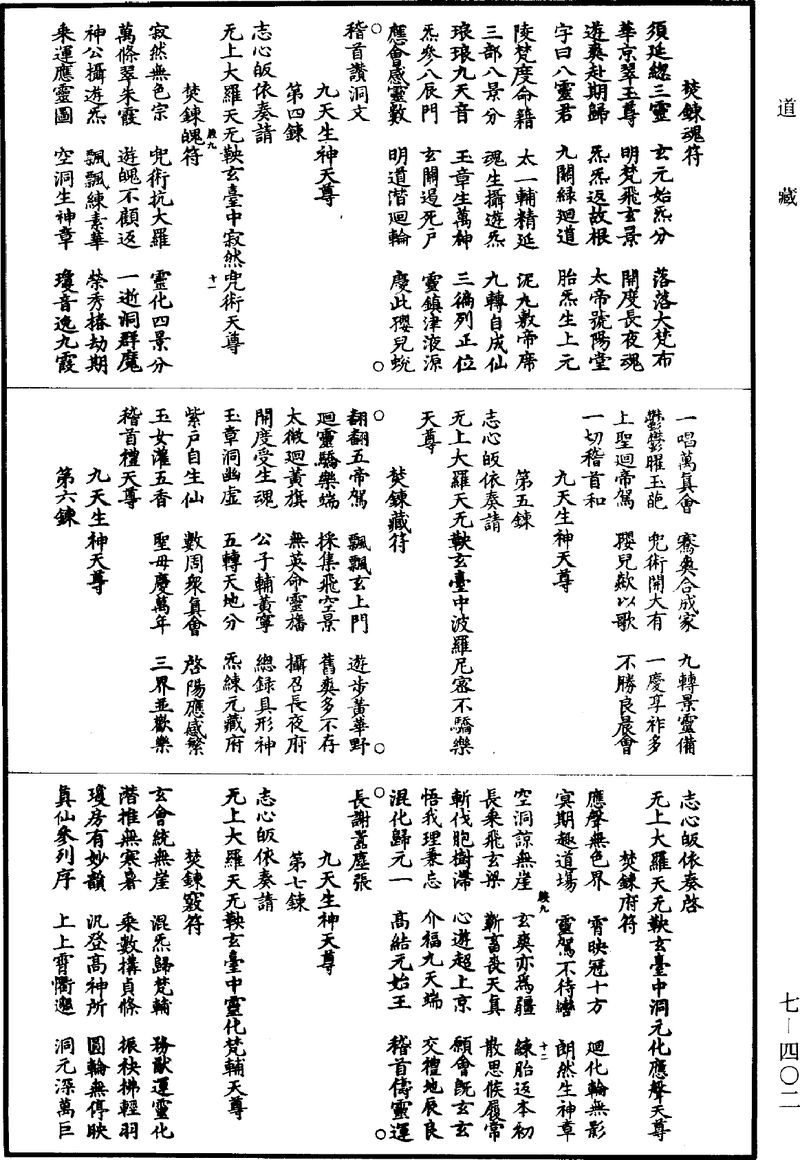 道藏
七—四〇二
焚鍊魂符
須延總三靈　玄元始炁分　落落大梵布
華京翠玉尊　明梵飛玄景　開度長夜魂
遊爽赴期歸　炁炁返故根　太帝號陽堂
字曰八靈君　九關綠廻道　胎炁生上元
陵梵度命籍　太一輔精延　泥丸敷帝席
三部八景分　魂生攝遊炁　九轉自成仙
琅琅九天音　玉章生萬神　三徧列正位
炁參八辰門　玄關遏死戶　靈鎮津液源
應會感靈數　明道潛廻輪　慶此瓔兒蛻
稽首讚洞文
九天生神天尊
第四鍊
志心皈依奏請
无上大羅天无鞅玄臺中寂然兜術天尊
焚鍊魄符
寂然無色宗　兜術抗大羅　靈化四景分
萬條翠朱霞　遊魄不顧返　一逝洞群魔
神公攝遊炁　飄飄練素華　榮秀椿劫期
乘運應靈圖　空洞生神章　瓊音逸九霞
一唱萬真會　騫爽合成家　九轉景靈備
鬱鬱曜玉葩　兜術開大有　一慶享祚多
上聖廻帝駕　瓔兒歘以歌　不勝良晨會
一切稽首和
九天生神天尊
第五鍊
志心皈依奏請
无上大羅天无鞅玄臺中波羅尼密不驕樂
天尊
焚鍊藏符
翻翻五帝駕　飄飄玄上門　遊步黃華野
迴靈驕樂端　採集飛空景　舊爽多不存
太微廻黃旗　無英命靈旛　攝召長夜府
開度受生魂　公子輔黃寧　總錄具形神
玉章洞幽虛　五轉天地分　炁練元藏府
紫戶自生仙　數周眾真會　啓陽應感繁
玉女灌五香　聖母慶萬年　三界並歡樂
稽首禮天尊
九天生神天尊
第六鍊
志心皈依奏啓
无上大羅天无鞅玄臺中洞元化應聲天尊
焚鍊府符
應聲無色界　霄映冠十方　廻化輪無影
冥期趣道場　靈駕不待轡　朗然生神章
空洞諒無崖　玄爽亦為疆　練胎返本初
長乘飛玄梁　蘄畜喪天真　散思候履常
斬伐胞樹滯　心遊超上京　願會既玄玄
悟我理兼忘　介福九天端　交禮地辰良
混化歸元一　高結元始王　稽首儔靈運
長謝囂塵張
九天生神天尊
第七鍊
志心皈依奏請
无上大羅天无鞅玄臺中靈化梵輔天尊
焚鍊竅符
玄會統無崖　混炁歸梵輔　務猷運靈化
潛推無寒暑　乘數構貞條　振袂拂輕羽
瓊房有妙韻　汎登高神所　圓輪無停映
真仙參列序　上上霄衢邈　洞元深萬巨